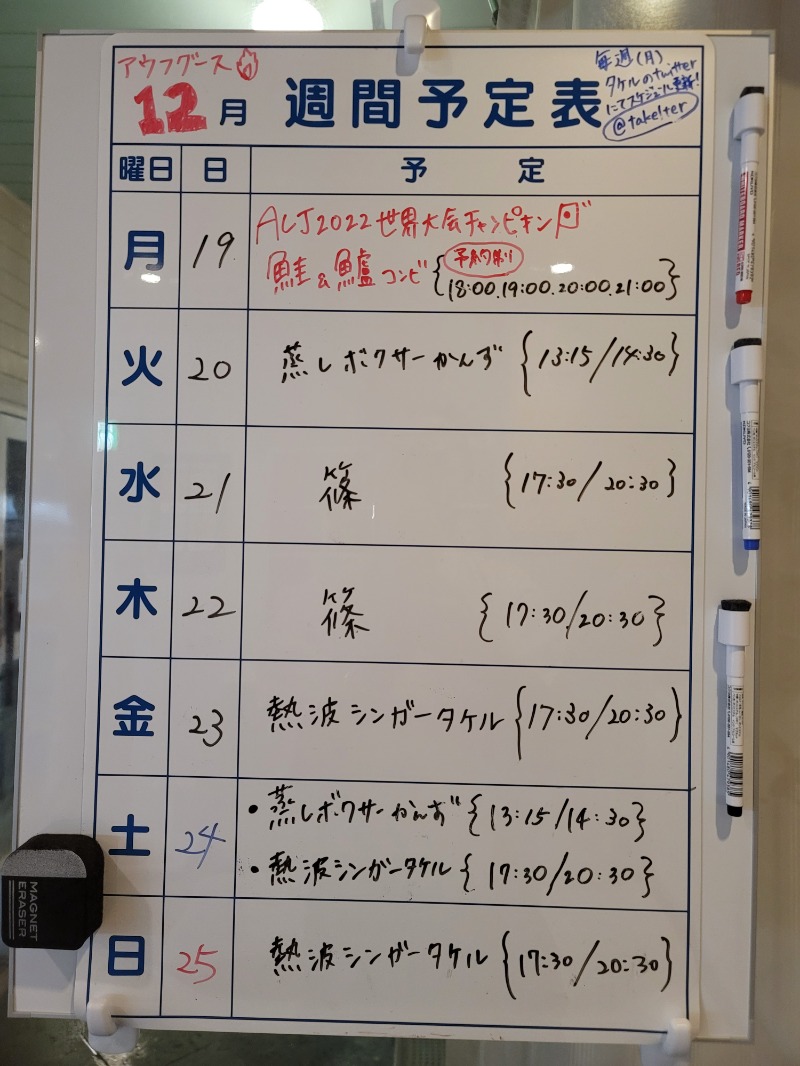 アウフグース
12月 週間予定表
毎週(月)
タケルのtwitter
にてスケジュール更新!
@takelter
曜日 日 予定
月 19 ALJ2022世界大会チャンピオン
鮭&鱸コンビ 予約制 {18:00.19:00.20:00.21:00}
火 20 蒸しボクサーかんず {13:15/14:30}
水 21 篠 {17:30/20:30}
木 22 篠 {17:30/20:30}
金 23 熱波シンガータケル {17:30/20:30}
土 24 ・蒸しボクサーかんず {13:15/14:30}
・熱波シンガータケル {17:30/20:30}
日 25 熱波シンガータケル {17:30/20:30}
MAGNET
ERASER